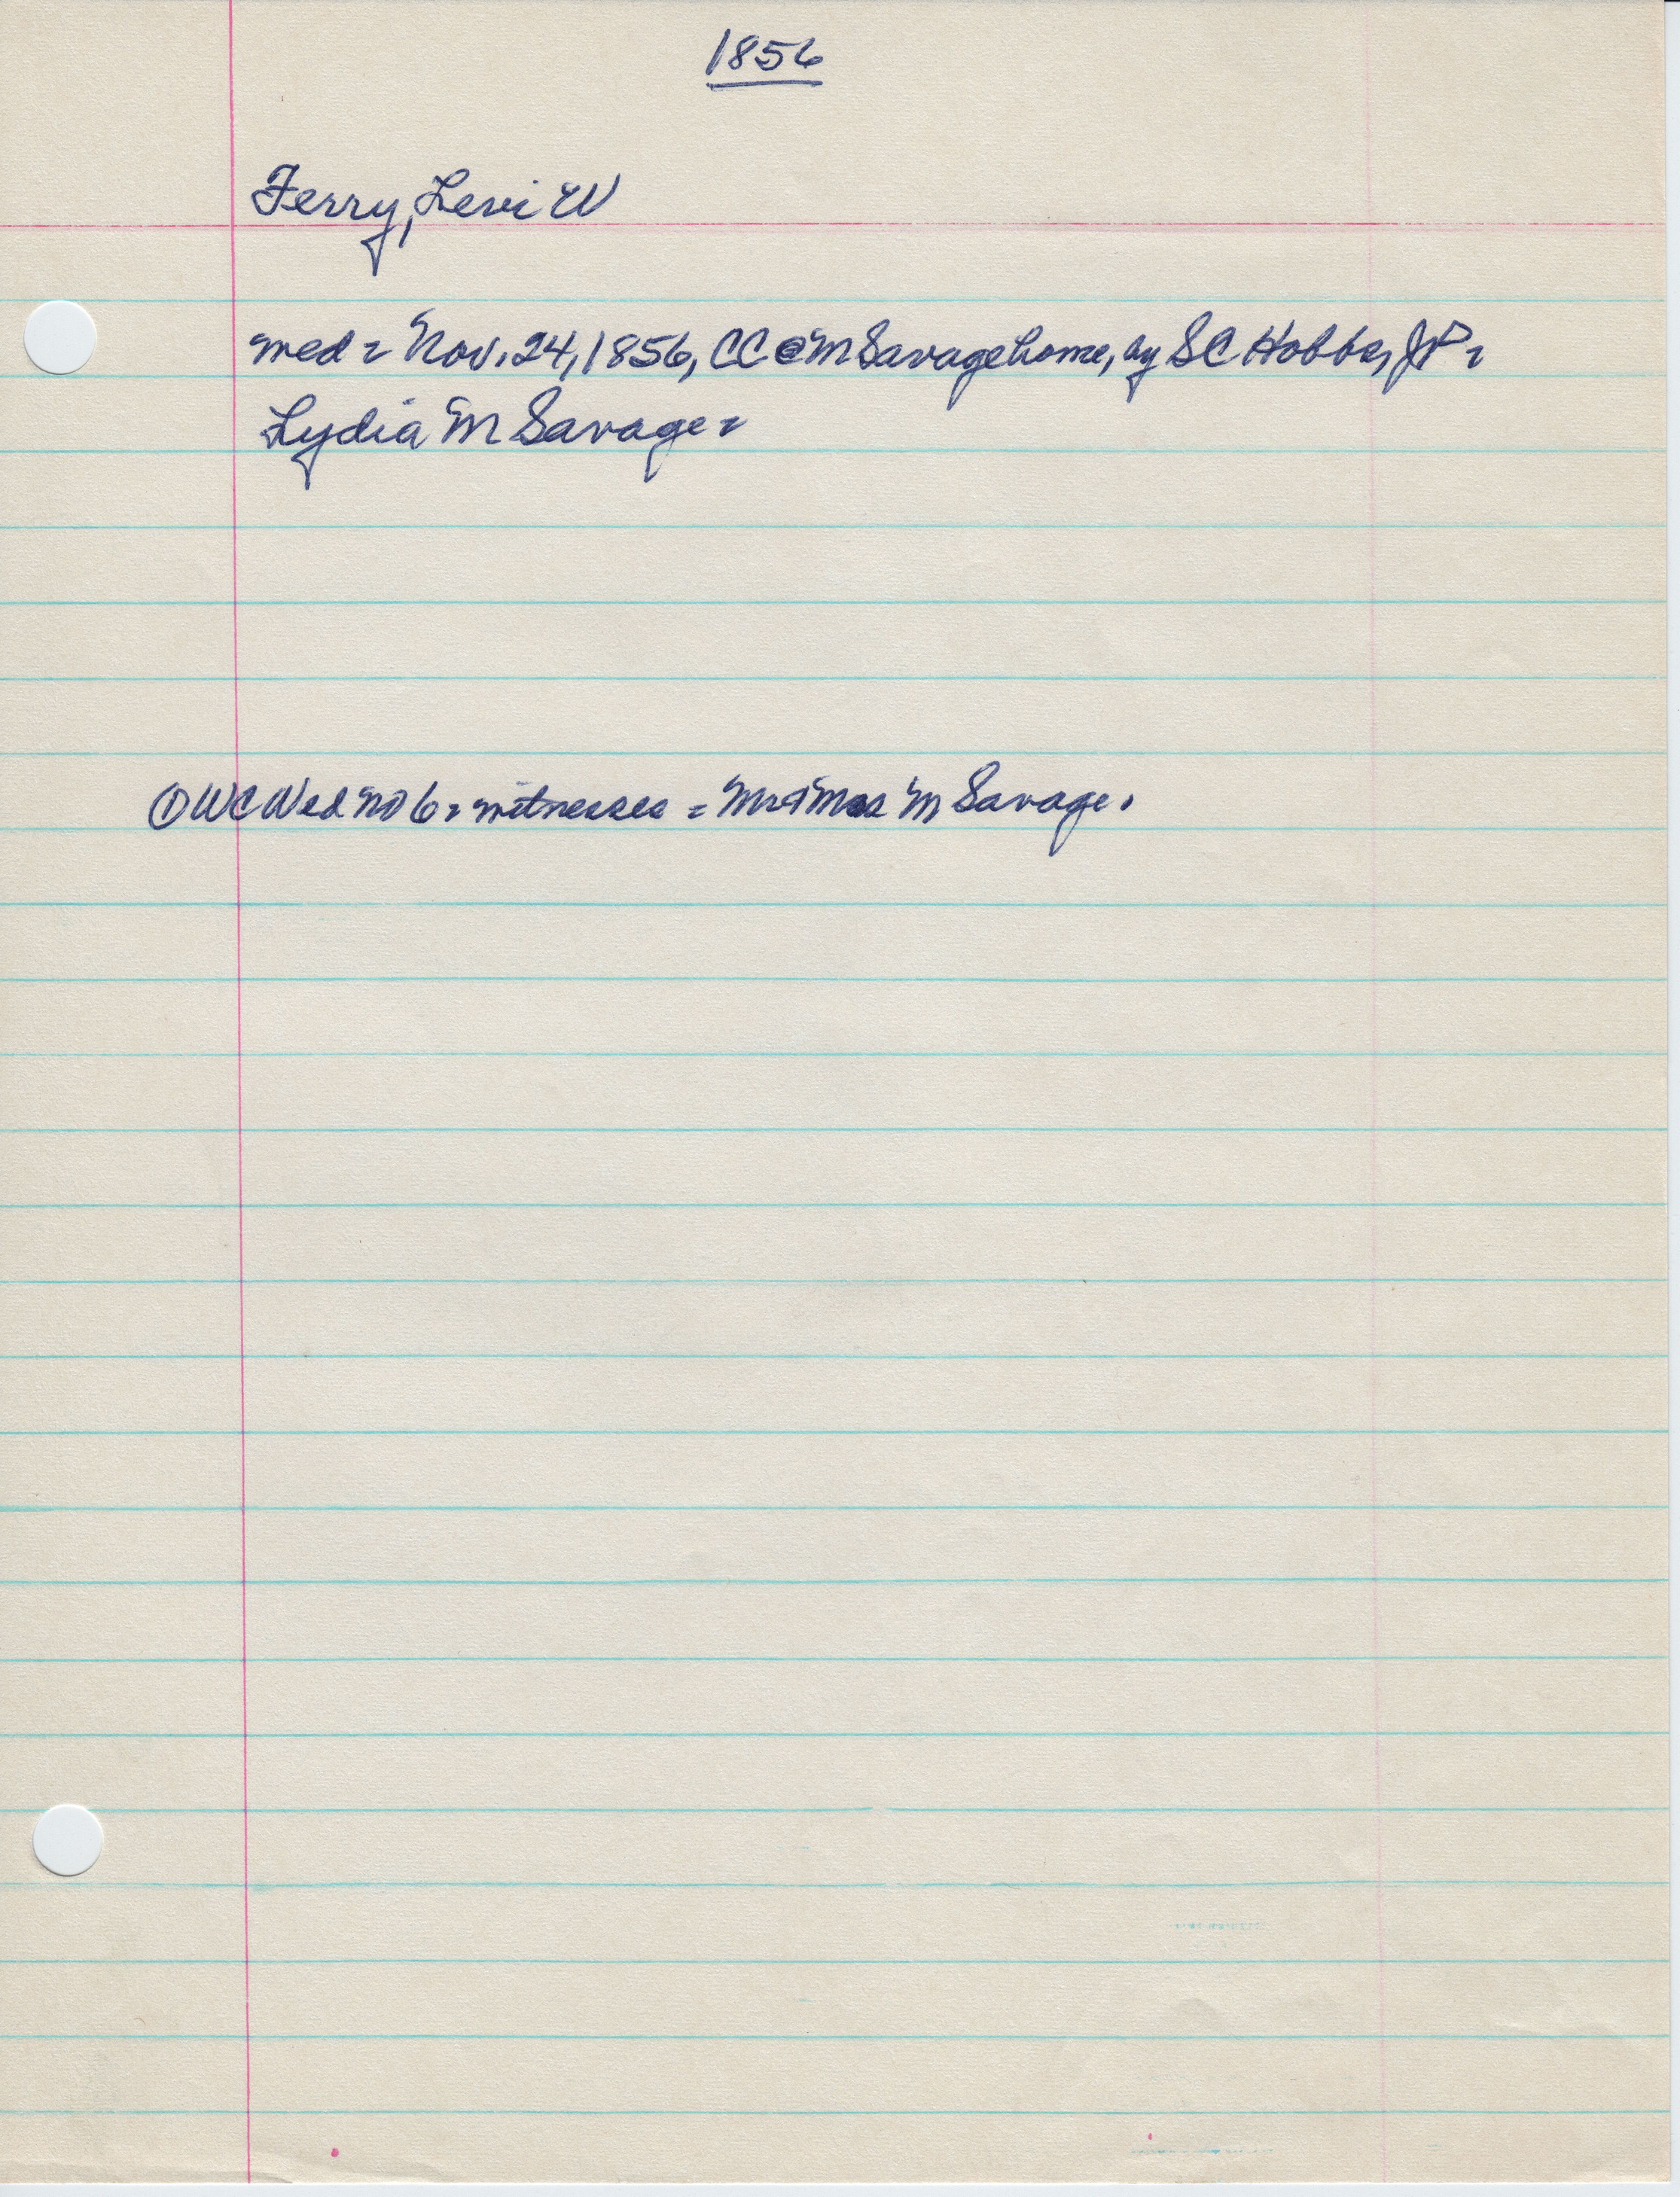 1856
Ferry, Levi W
med = Nov. 24, 1856, CC @ M Savage home, by SC Hobbs, JP =
Lydia M Savage =
① WC Wed No 6 = witnesses = Mr & Mrs M Savage.